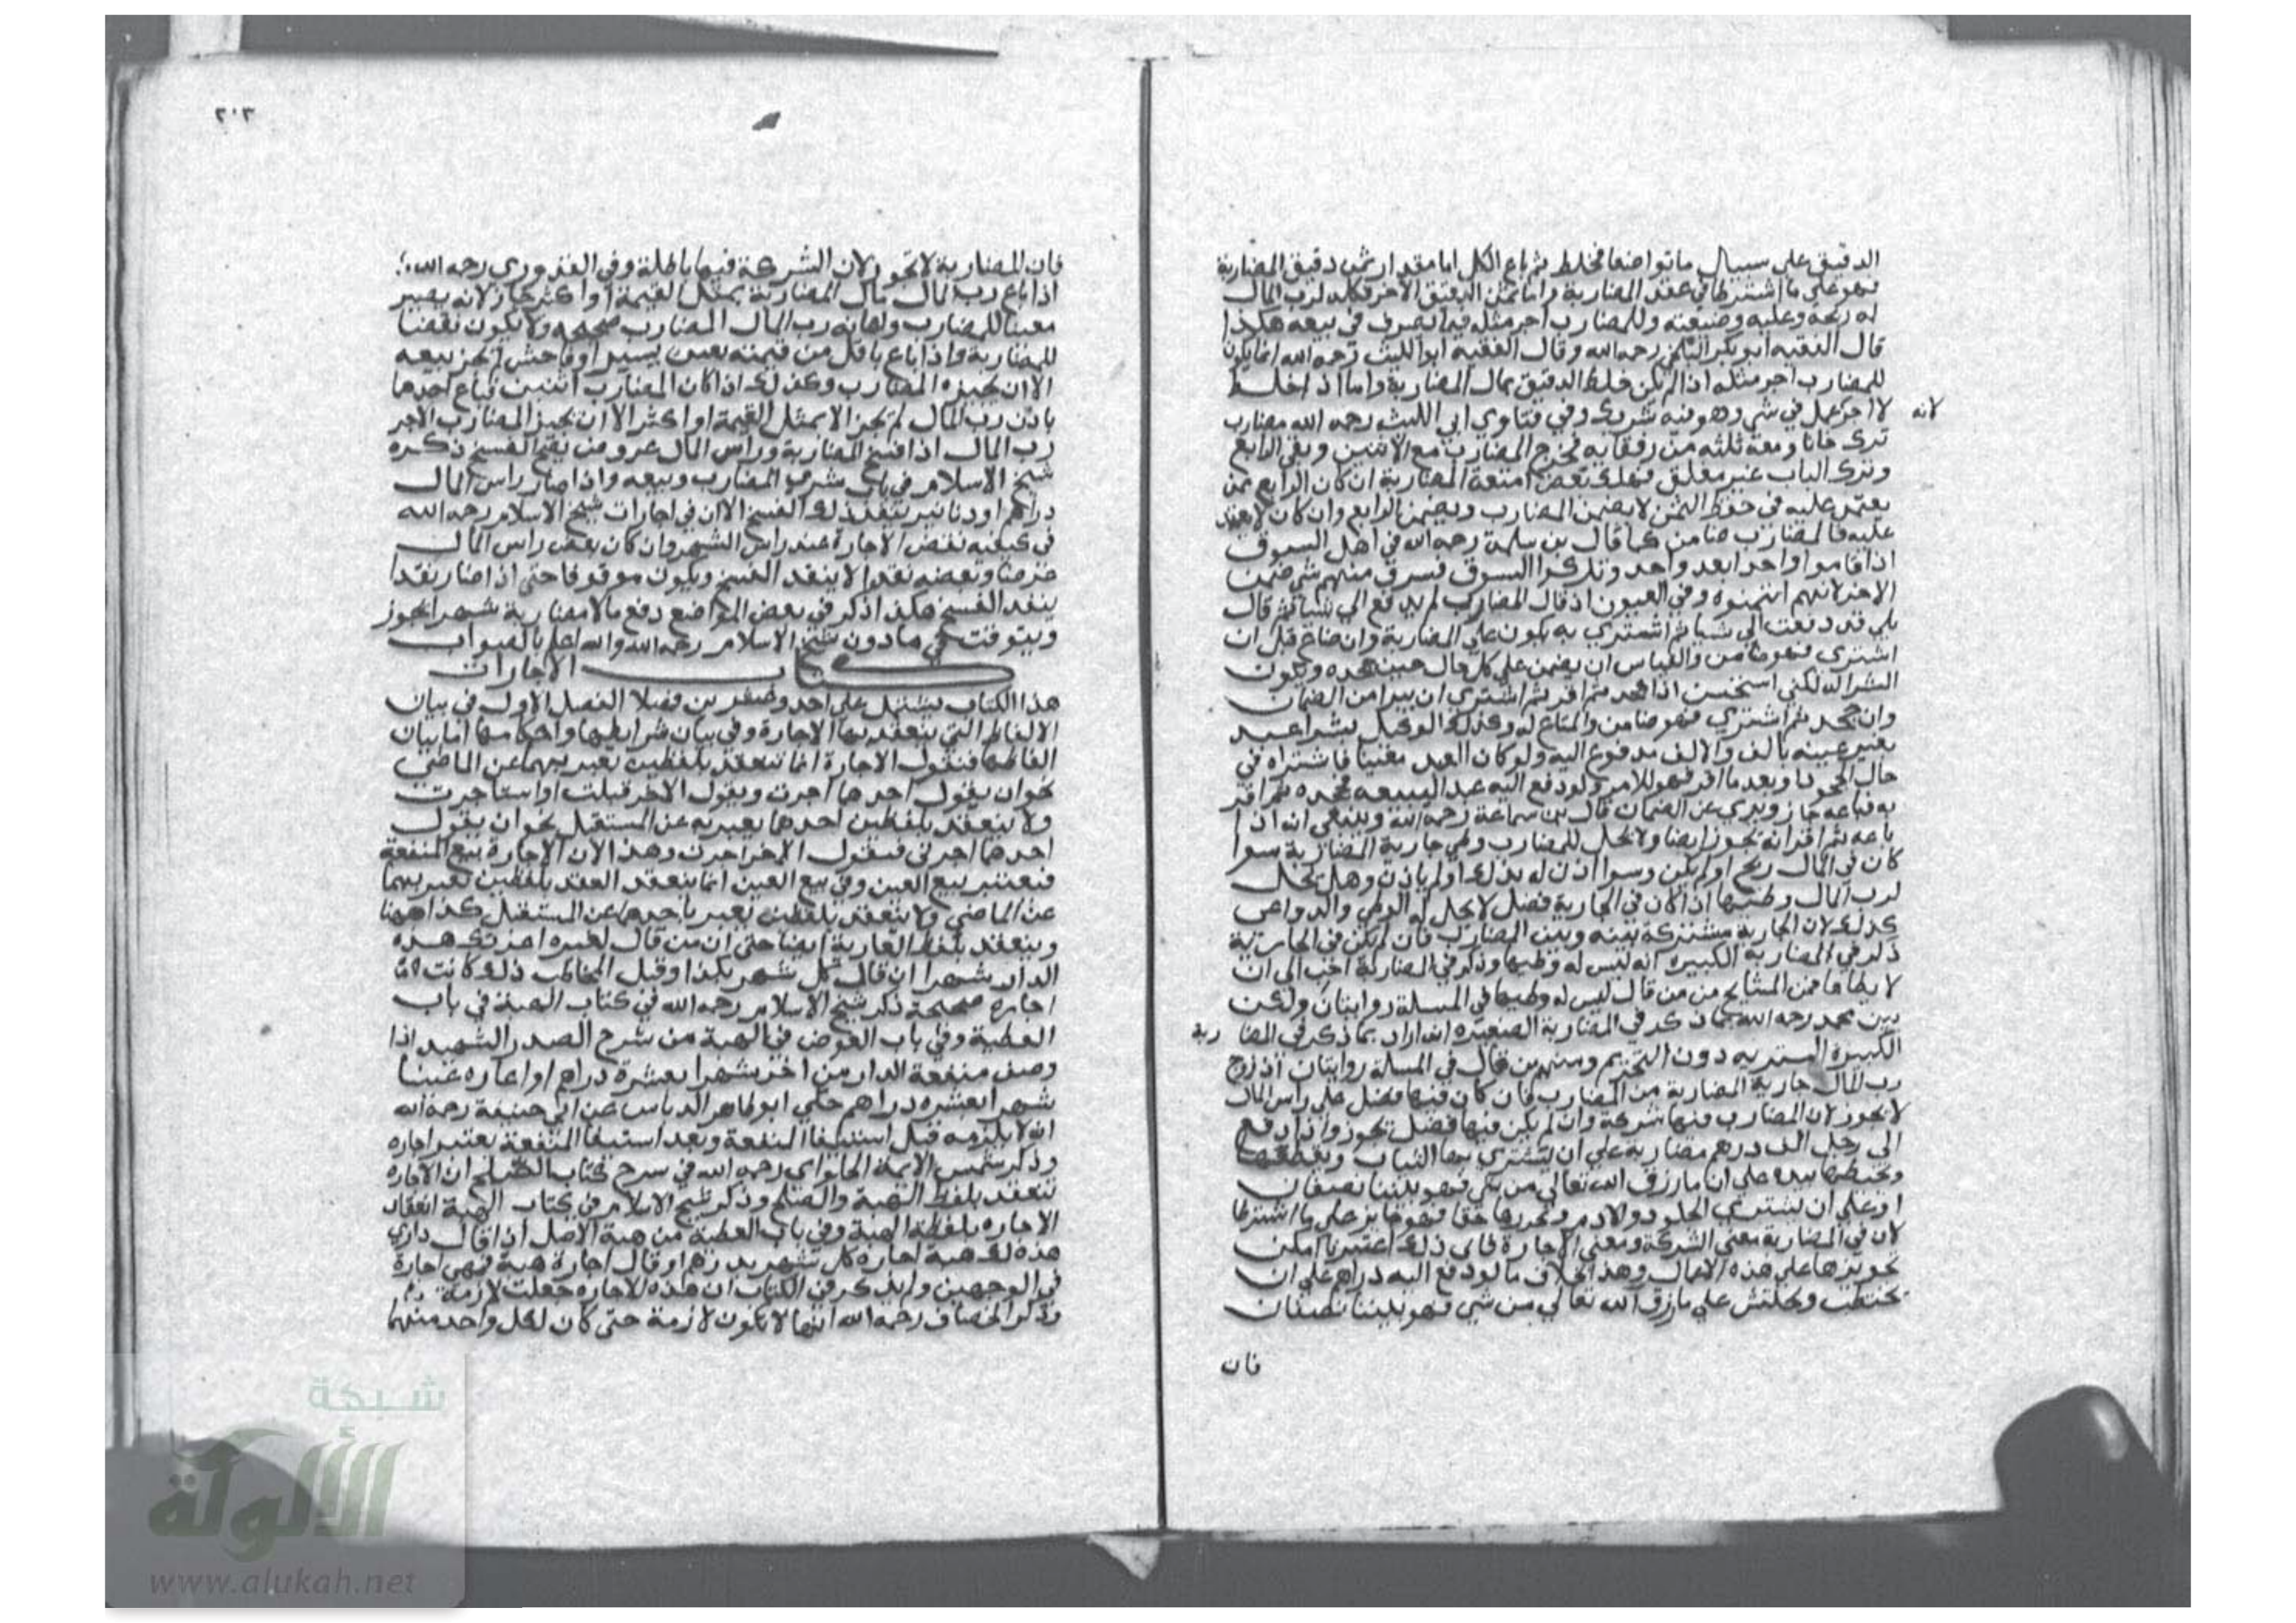 الدقيق على سبيل ما تواضعا فخلط ثم باع الكل اما مقدار ثمن دقيق المضاربة
فهو على ما اشترطا في عقد المضاربة واما ثمن الدقيق الاخر فكله لرب المال
له ربحه وعليه وضيعته وللمضارب اجر مثله فيما تصرف في بيعه هكذا
قال الفقيه ابو بكر البلخي رحمه الله وقال الفقيه ابو الليث رحمه الله انما يكون
للمضارب اجر مثله اذا لم يكن خلط الدقيق بمال المضاربة واما اذا خلط
لا اجر عمل في شي وهو فيه شريك وفي فتاوي ابي الليث رحمه الله مضارب
لانه
ترك خانا ومعه ثلثة من رفقايه فخرج المضارب مع الاثنين وبقي الرابع
وترك الباب غير مغلق فهلك بعض امتعة المضاربة ان كان الرابع ممن
يعتمد عليه في حفظ لا يضمن المضارب ويضمن الرابع وان كان لا يعتمد
عليه فالمضارب ضامن كما قال بن سلمة رحمه الله في اهل السوق
اذا قاموا واحدا بعد واحد وتركوا السوق فسرق منهم شي ضمن
الاخر لانهم ائتمنوه وفي العيون اذ قال المضارب لم يدفع الي شيا ثم قال
بلى قد دفعت الي شيا ثم اشتري به يكون على المضاربة وان ضاع قبل ان
اشتري فهو ضامن والقياس ان يضمن على كل حال حين جحده ويكون
الشرا له لكني استحسن اذا جحد ثم اقر ثم اشتري ان يبرا من الضمان
وان جحد ثم اشتري فهو ضامن والمتاع له وكذلك الوكيل بشرا عبد
بغير عينه بالف والالف مدفوع اليه ولو كان العبد معينا فاشتراه في
حال الجحود او بعد ما اقر فهو للامر ولو دفع اليه عبدا ليبيعه فجحده ثم اقر
به فباعه جاز وبري عن الضمان قال بن سماعة رحمه الله وينبغي انه اذا
باعه ثم اقر انه يجوز ايضا ولا يحل للمضارب وطي جارية المضاربة سوا
كان في المال ربح او لم يكن وسوا اذن له بذلك او لم ياذن وهل يحل
لرب المال وطيها اذا كان في الجارية فضل لا يحل له الوطي والدواعي
كذلك لان الجارية مشتركة بينه وبين المضارب فان لم يكن في الجارية
ذكر في المضاربة الكبيرة انه ليس له وطيها وذكر في المضاربة احب الي ان
لا يطاها فمن المشايخ من قال ليس له وطيها في المسلة روايتان ولكن
بين محمد رحمه الله بما ذكر في المضاربة الصغيرة انه اراد بما ذكر في المضا ربة
الكبيرة التنزيه دون التحريم ومنهم من قال في المسلة روايتان اذ زوج
رب المال جارية المضاربة من المضارب فان كان فيها فضل على راس المال
لا يجوز لان المضارب فيها شركة وان لم يكن فيها فضل يجوز واذا دفع
الى رجل الف درهم مضاربة على ان يشتري بها الثياب ويقطعها
ويخيطها بيده على ان ما رزق الله تعالى من شي فهو بيننا نصفان
او على ان يشتري الجلود والادم ويخرزها خفا فهو جايز على ما اشترطا
لان في المضاربة معنى الشركة ومعنى الاجارة فاى ذلك اعتبرنا امكن
تجويزها على هذه الاعمال وهذا بخلاف ما لو دفع اليه دراهم على ان
يحتطب ويحتش على ما رزق الله تعالى من شي فهو بيننا نصفان
فان
٢٠٣
فان المضاربة لا تجوز لان الشركة فيها باطلة وفي القدوري رحمه الله
اذا باع رب المال مال المضاربة بمثل القيمة او اكثر جاز لانه يصير
معينا للمضارب واعانة رب المال المضارب صحيحه ولا يكون نقضا
للمضاربة واذا باع باقل من قيمته بغبن يسير او فاحش لم يجز بيعه
الا ان يجيزه المضارب وكذلك اذا كان المضارب اثنين فباع احدهما
باذن رب المال لم تجز الا بمثل القيمة او اكثر الا ان يجيز المضارب الاخر
رب المال اذا فسخ المضاربة وراس المال عروض يصح الفسخ ذكره
شيخ الاسلام في باب شرى المضارب وبيعه واذا صار راس المال
دراهم او دنانير ينفذ ذلك الفسخ الا ان في اجارات شيخ الاسلام رحمه الله
في كيفيه نقض الاجارة عند راس الشهر وان كان بعض راس المال
عرضا وبعضه نقدا لا ينفذ الفسخ ويكون موقوفا حتى اذا صار نقدا
ينفذ الفسخ هكذا ذكر في بعض المواضع دفع مالا مضاربة شهرا يجوز
ويتوقت في ماذون شيخ الاسلام رحمه الله والله اعلم بالصواب
كتاب الاجارات
هذا الكتاب يشتمل على احد وعشرين فصلا الفصل الاول في بيان
الالفاظ التي ينعقد بها الاجارة وفي بيان شرايطها واحكامها اما بيان
الفاظها فنقول الاجارة انما تنعقد بلفظين يعبر بهما عن الماضي
نحو ان يقول احدهما اجرت ويقول الاخر قبلت او استاجرت
ولا ينعقد بلفظين احدهما يعبر به عن المستقبل نحو ان يقول
احدهما اجرني فيقول الاخر اجرت وهذا لان الاجارة بيع المنفعة
فتعتبر ببيع العين وفي بيع العين انما ينعقد العقد بلفظين تعبر بهما
عن الماضي ولا ينعقد بلفظين يعبر باحدهما عن المستقبل كذا ههنا
وينعقد بلفظ العارية ايضا حتى ان من قال لغيره اعرتك هذه
الدار شهرا ان قال كل شهر بكذا وقبل المخاطب ذلك كانت
اجارة صحيحة ذكر شيخ الاسلام رحمه الله في كتاب الهبة في باب
العطية وفي باب العوض في الهبة من شرح الصدر الشهيد اذا
وهب منفعة الدار من اخر شهرا بعشرة دراهم او اعاره عينا
شهرا بعشره دراهم حكي ابو طاهر الدباس عن ابي حنيفة رحمه الله
انه لا يلزمه قبل استيفا المنفعة وبعد استيفا المنفعة يعتبر اجاره
وذكر شمس الايمة الحلواي رحمه الله في شرح كتاب الصلح ان الاجاره
تنعقد بلفظ الهبة والصلح وذكر شيخ الاسلام في كتاب الهبة انعقاد
الاجاره بلفظة الهبة وفي باب العطية من هبة الاصل اذا قال داري
هذه لك هبة اجارة كل شهر بدرهم او قال اجارة هبة فهي اجارة
في الوجهين ولم يذكر في الكتاب ان هذه الاجاره جعلت لازمة
وذكر الخصاف رحمه الله انها لا تكون لازمة حتى كان لكل واحد منهما
شبكة
الألوكة
www.alukah.net